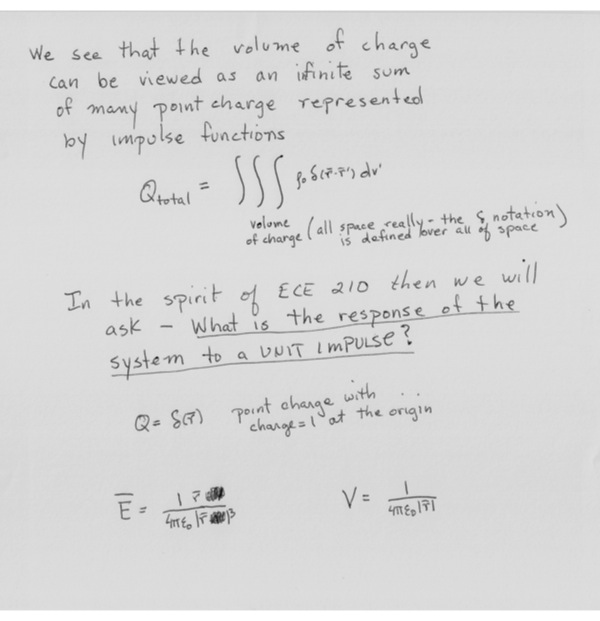 We see that the volume of charge
can be viewed as an ifinite sum
of many point charge represented
by impulse functions
Q_total = ∭ ρ₀ δ(r̄-r̄') dv'
volume of charge (all space really - the δ notation)
is defined over all of space
In the spirit of ECE 210 then we will
ask - What is the response of the
system to a UNIT IMPULSE?
Q = δ(r̄) point charge with
charge = 1 at the origin
E̅ = 1 r̄ / 4πε₀ |r̄|³
V = 1 / 4πε₀|r̄|